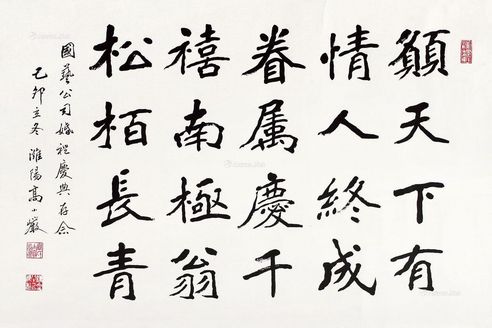 願天下有
情人終成
眷属慶千
禧南極翁
松栢長青
國藝公司婚禮慶典存念
己卯立冬濰陽高小巖